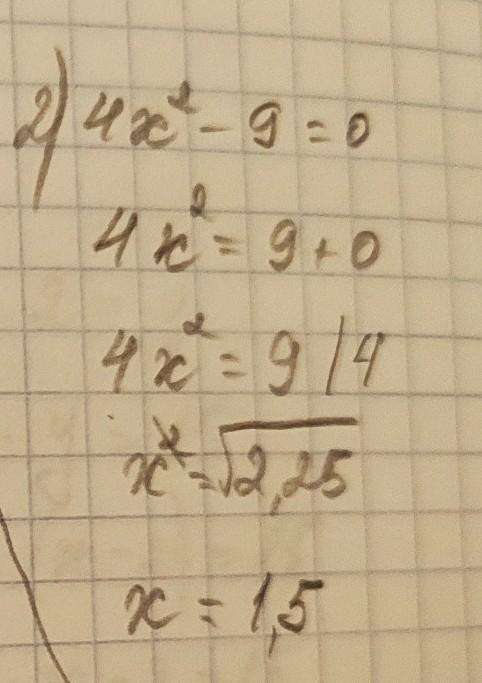 2) 4x² - 9 = 0
4x² = 9 + 0
4x² = 9 | 4
x² = √2,25
x = 1,5